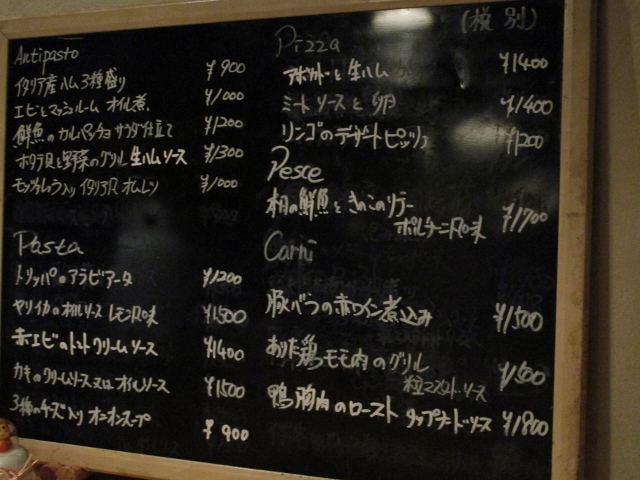 (税別)
Antipasto
イタリア産ハム3種盛り ¥900
エビとマッシュルーム オイル煮 ¥1000
鮮魚のカルパッチョ サラダ仕立て ¥1200
ホタテ貝と野菜のグリル 生ハムソース ¥1300
モッツァレラ入り イタリア風 オムレツ ¥1000
Pasta
トリッパのアラビアータ ¥1200
ヤリイカのオイルソース レモン風味 ¥1500
赤エビのトマトクリームソース ¥1400
カキのクリームソース又はオイルソース ¥1500
3種のチーズ入り オニオンスープ ¥900
Pizza
アボカドと生ハム ¥1400
ミートソースと卵 ¥1400
リンゴのデザートピッツァ ¥1200
Pesce
相の鮮魚ときのこのソテー
ポルチーニ風味 ¥1700
Carni
豚バラの赤ワイン煮込み ¥1500
ありた鶏モモ肉のグリル
粒マスタードソース ¥1500
鴨胸肉のロースト タップナードソース ¥1800